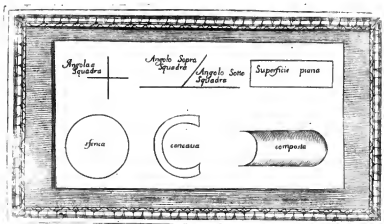 Angolo a
Squadra
Angolo Sopra
Squadra
Angolo Sotto
Squadra
Superficie piana
sferica
concaua
composta